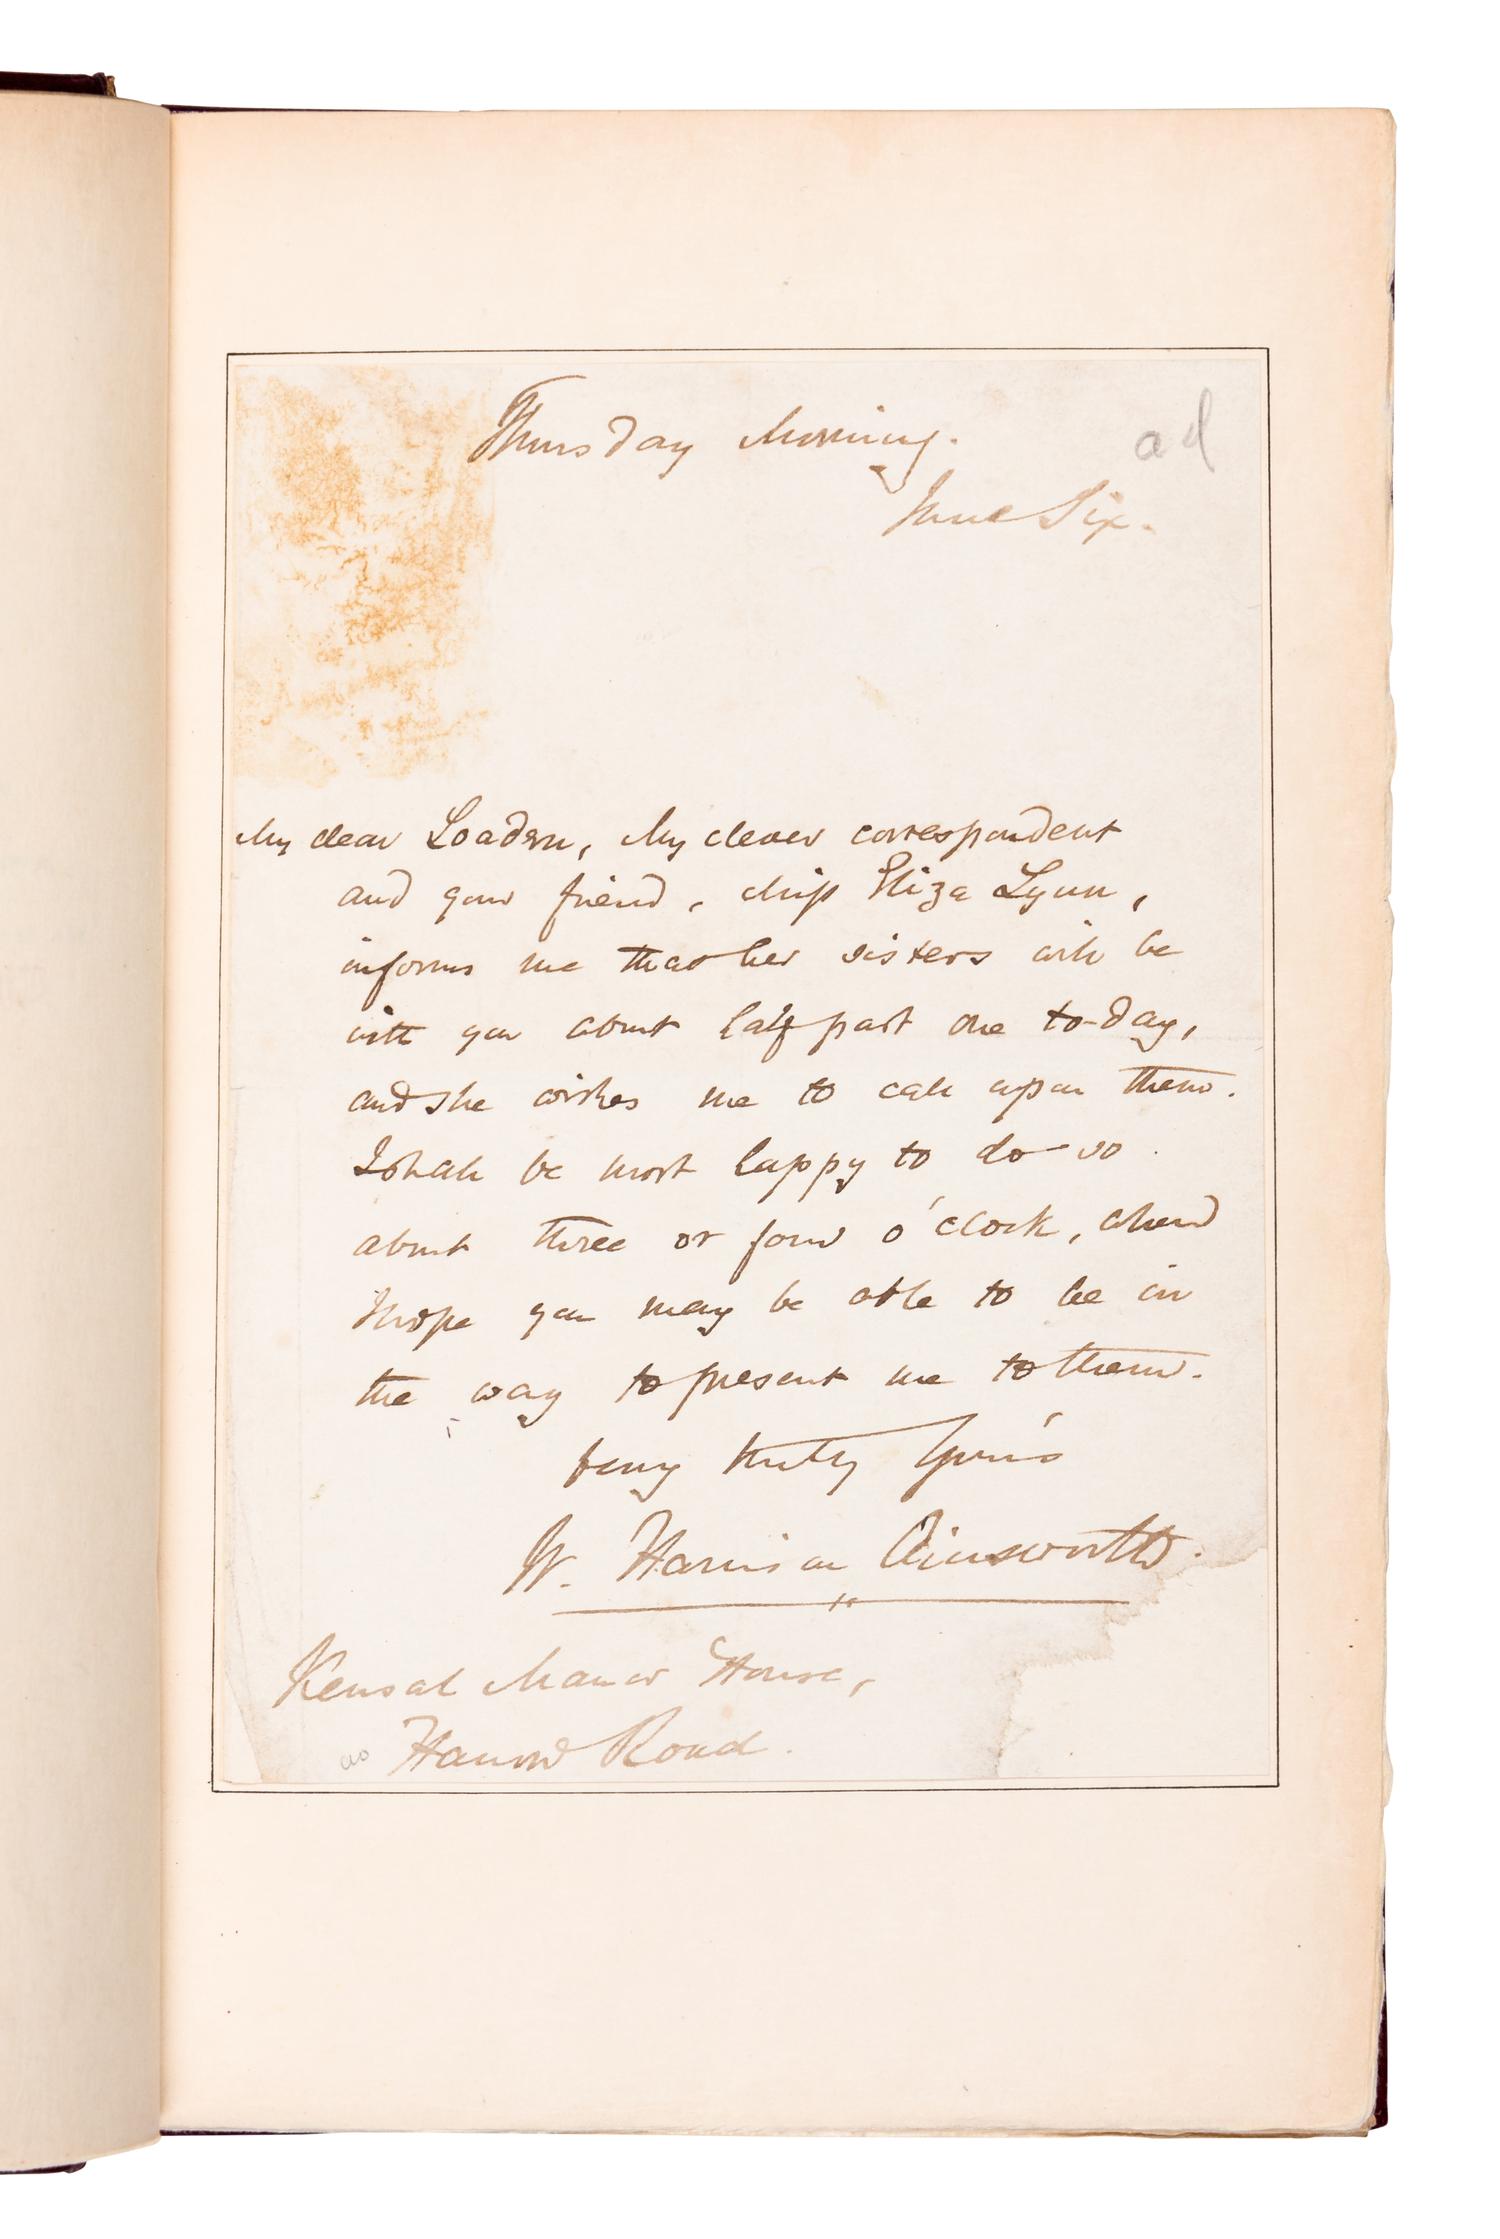 Thursday Morning.
ad
June Six.
My dear Loaden, My clever correspondent
and your friend, Miss Eliza Lynn,
informs me that her sisters will be
with you about half past one to-day,
and she wishes me to call upon them.
I shall be most happy to do so
about three or four o'clock, when
I hope you may be able to be in
the way to present me to them.
Very truly Yours
W. Harrison Ainsworth.
Kensal Manor House,
Harrow Road.